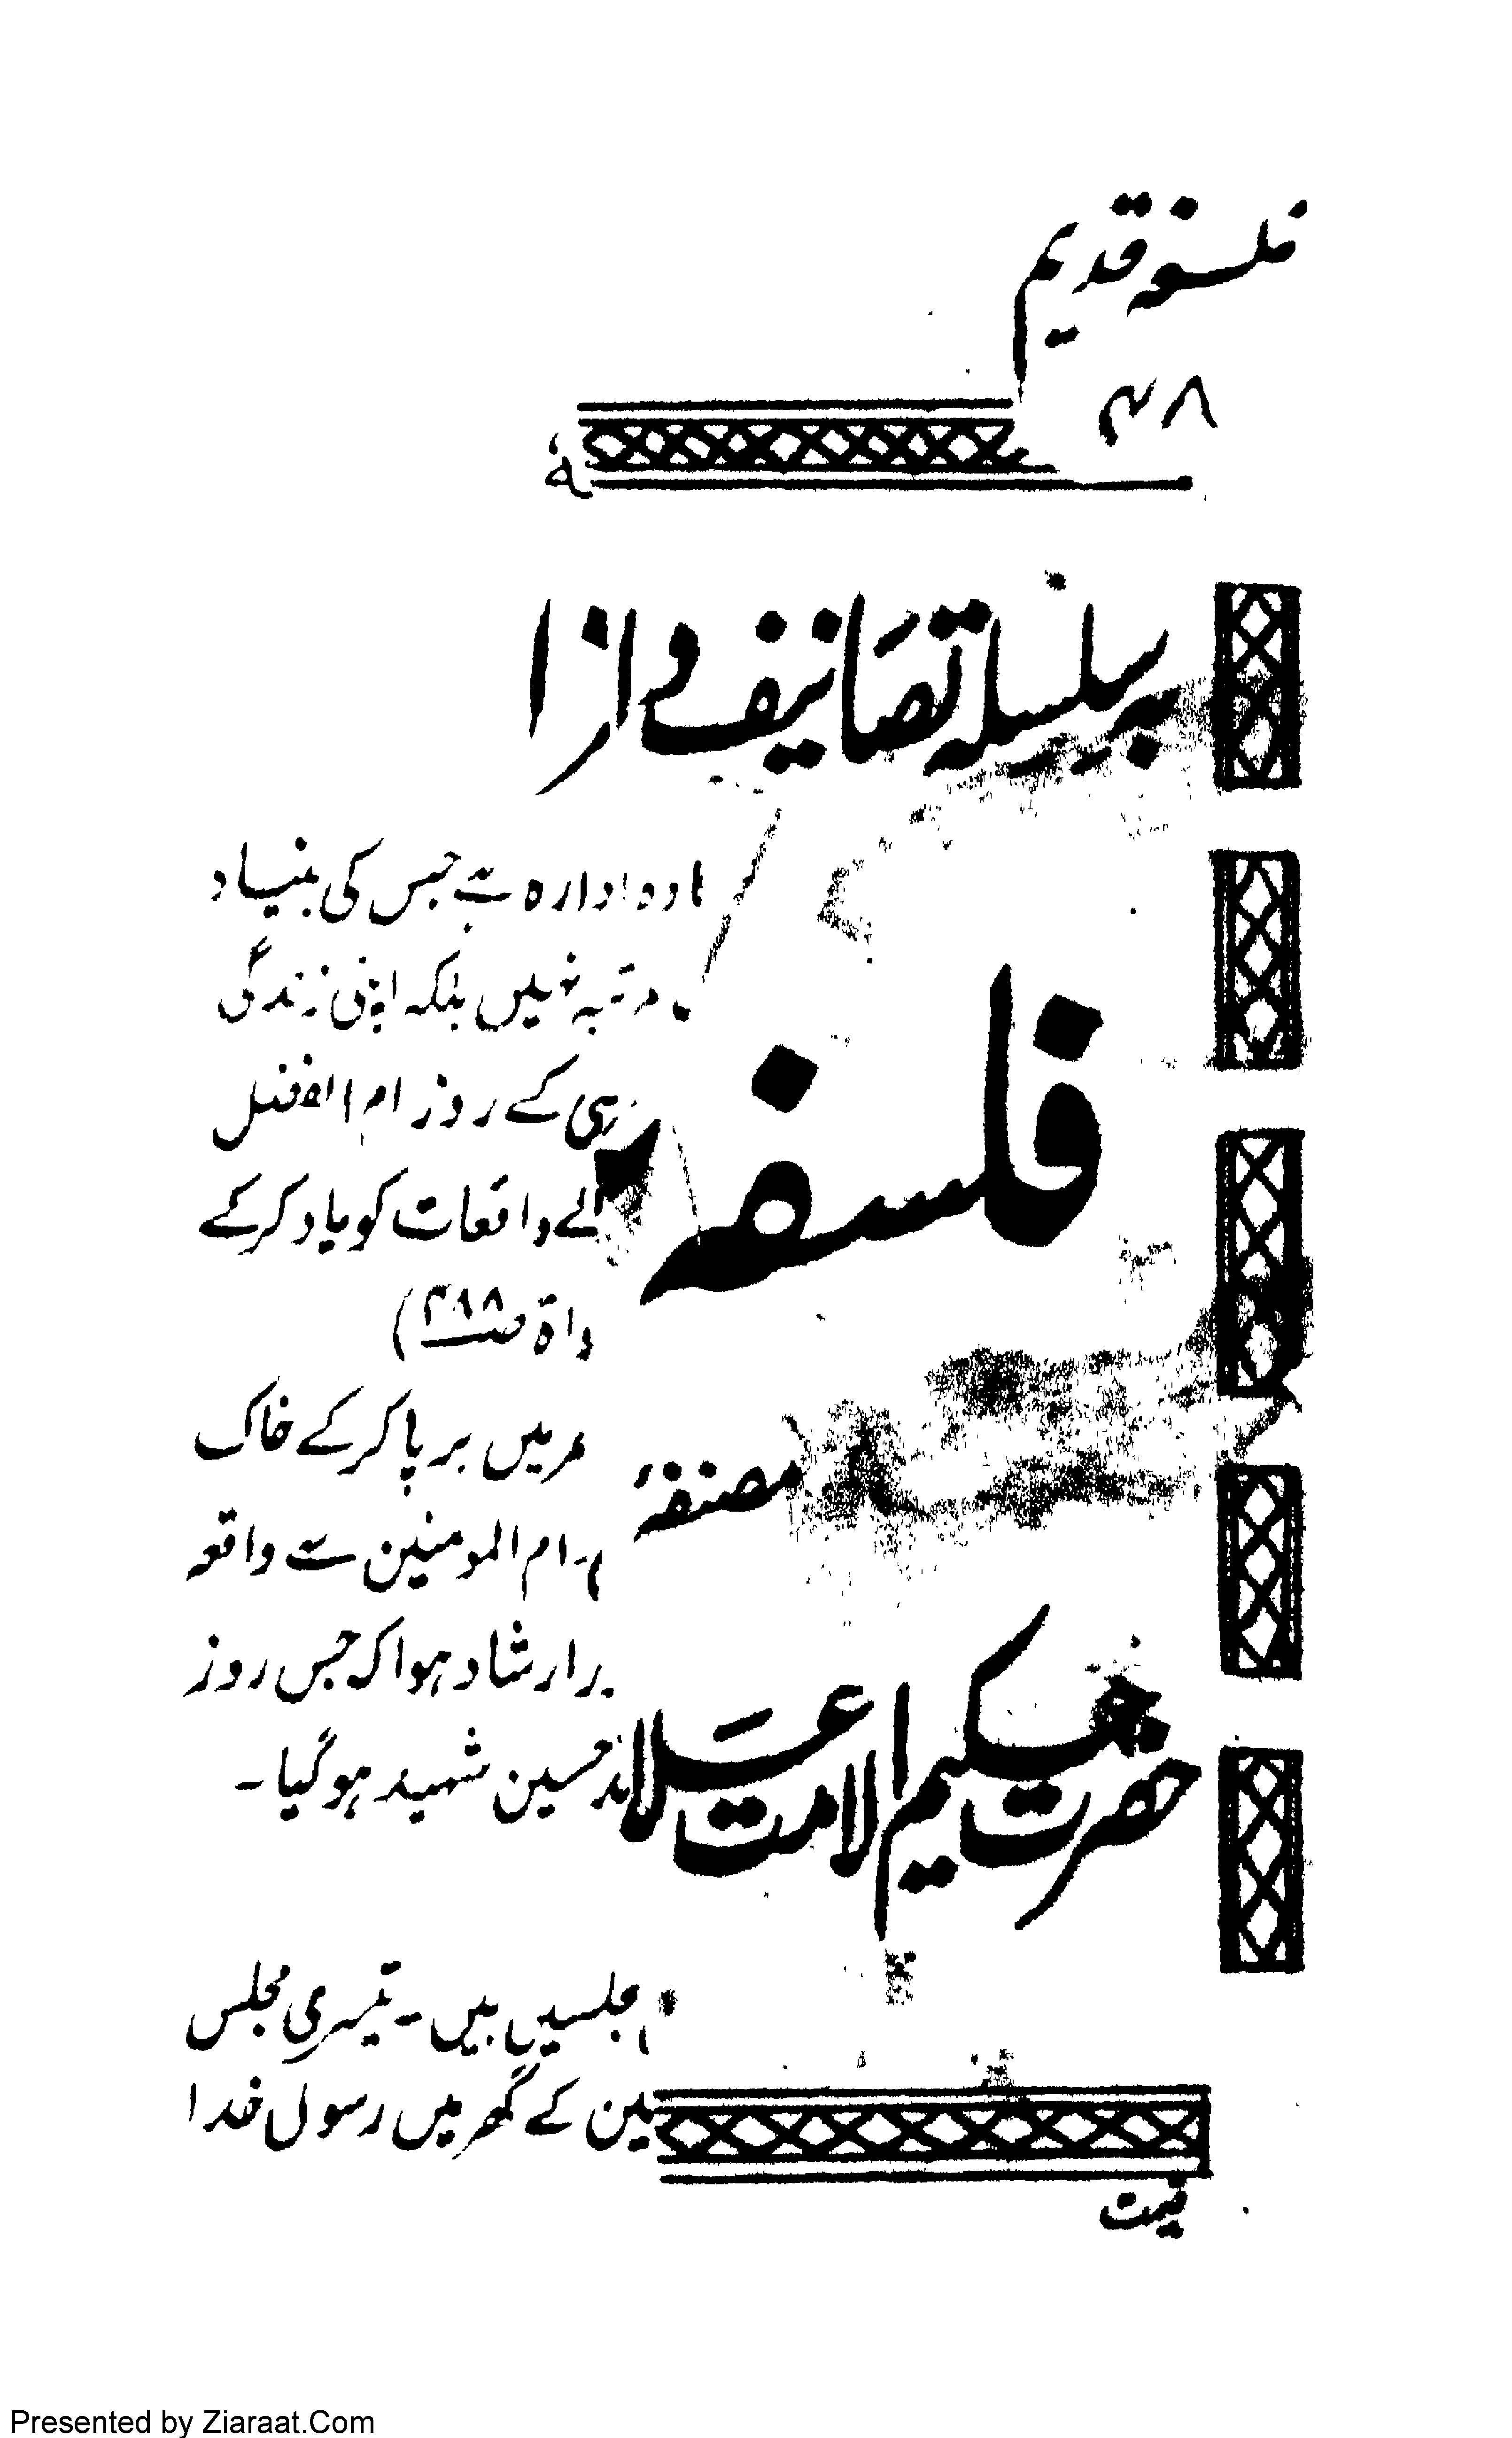 فلسفہ قدیم
۴۸
بہ سلسلہ تصانیف و از ا
وہ ادارہ ہے جس کی بنیاد
مرتبہ نہیں بلکہ اپنی زندگی
فلسفہ
ہی کے روز ام الفضل
لے واقعات کو یاد کرکے
ص۲۸۸)
میں برپا کرکے خاک
مصنفہٗ
ام المومنین سے واقعہ
ارشاد ہوا کہ جس روز
حضرت حکیم الامت علا
حسین شہید ہوگیا۔
مجلسیں ہیں۔ تیسری مجلس
ین کے گھر میں رسول خدا
قیمت
Presented by Ziaraat.Com